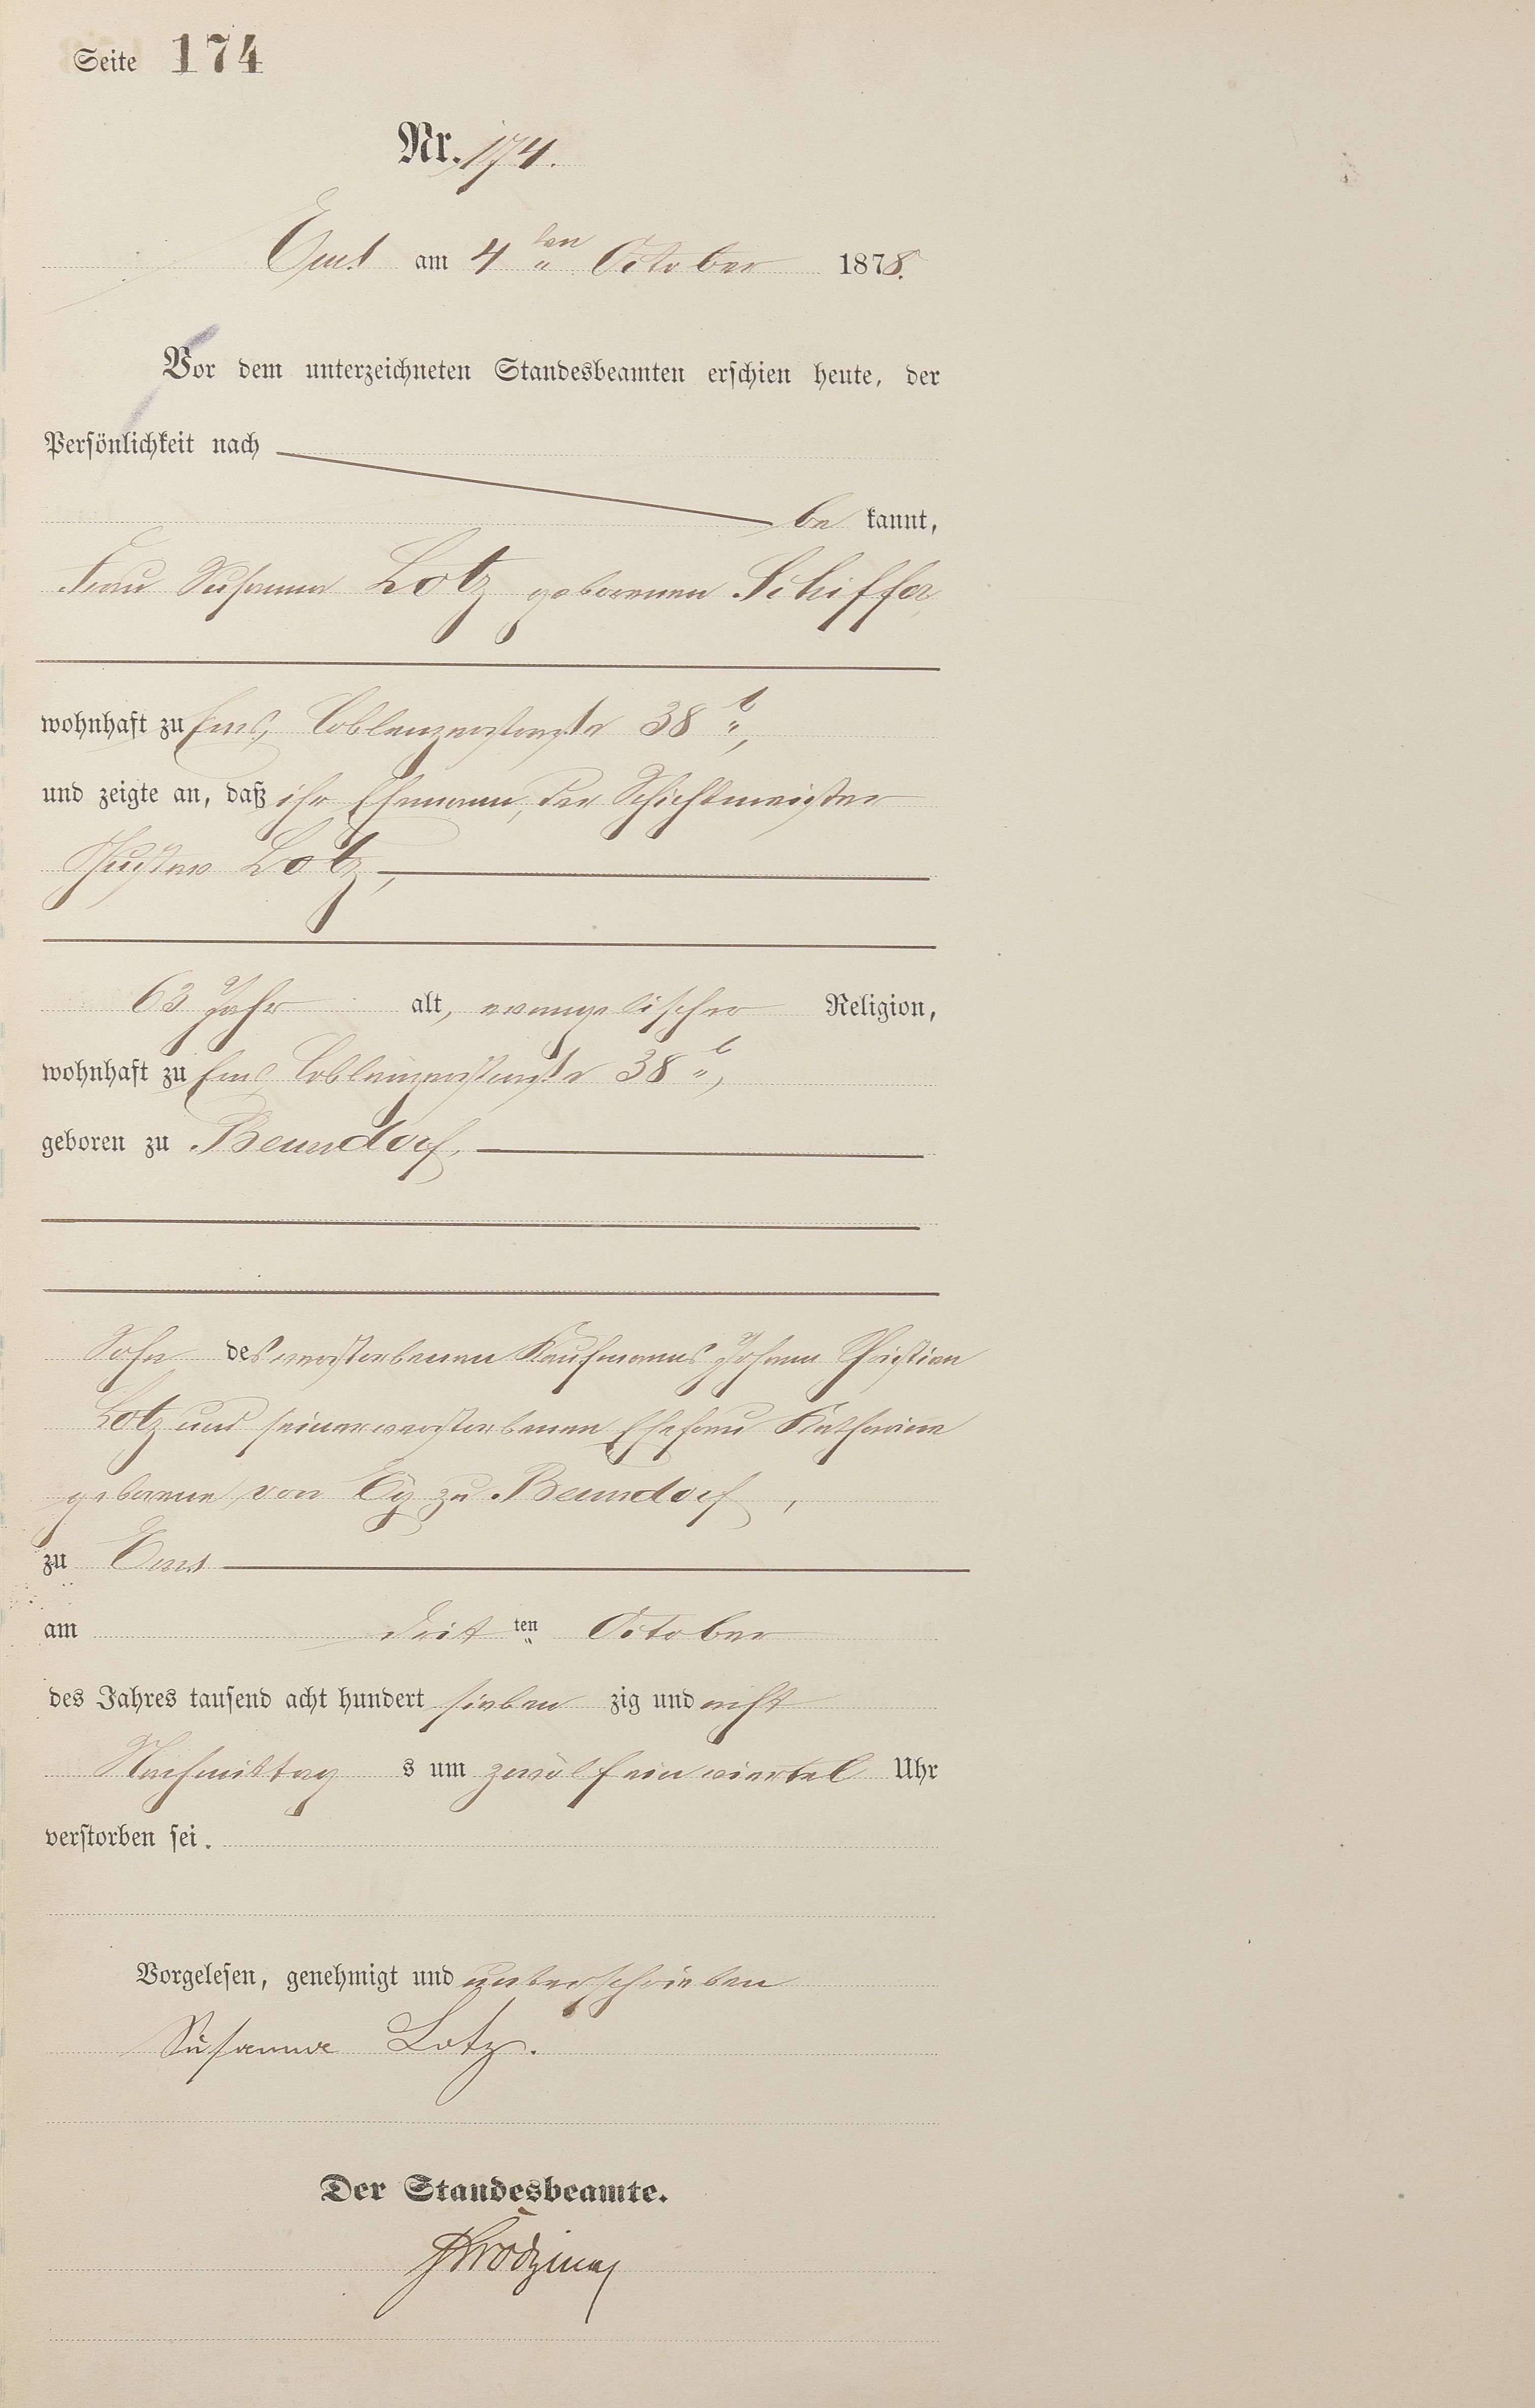 Seite 174
Nr. 174.
Ems am 4ten October 1878.
Vor dem unterzeichneten Standesbeamten erschien heute, der
Persönlichkeit nach
be kannt,
Frau Susanna Lotz geborenen Schiffer
wohnhaft zu Ems, Coblenzerstraße 38 b,
und zeigte an, daß ihr Ehemann, der Schichtmeister
Gustav Lotz,
63 Jahr alt, evangelischer Religion,
wohnhaft zu Ems Coblenzerstraße 38 b,
geboren zu Benndorf,
Sohn des verstorbenen Kaufmanns Johann Christian
Lotz und seiner verstorbenen Ehefrau Katharine
geborene von zu Benndorf,
zu Ems
am drit ten October
des Jahres tausend acht hundert sieben zig und acht
Nachmittag s um zwölf ein viertel Uhr
verstorben sei.
Vorgelesen, genehmigt und unterschrieben
Susanna Lotz.
Der Standesbeamte.